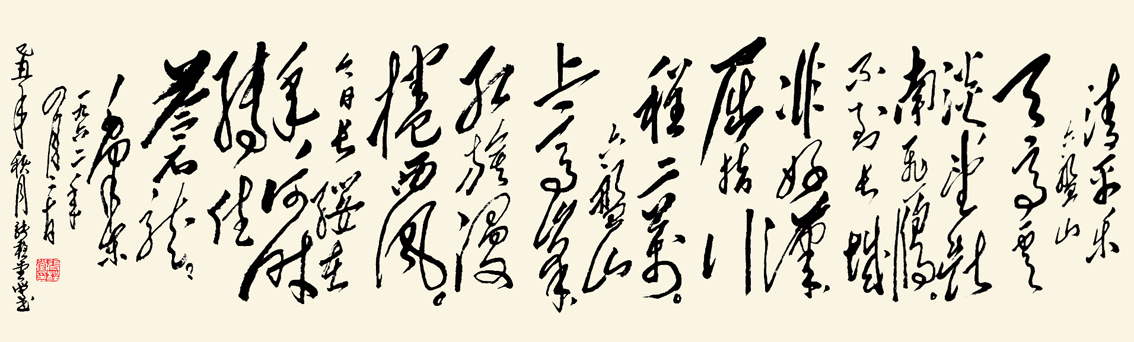 清平乐
六盘山
天高云
淡望断
南飞雁。
不到长城
非好汉
屈指行
程二万。
六盘山
上高峰
红旗漫
卷西风。
今日长缨在
手何时
缚住
苍龙
毛泽东
一九六一年
己丑年秋月